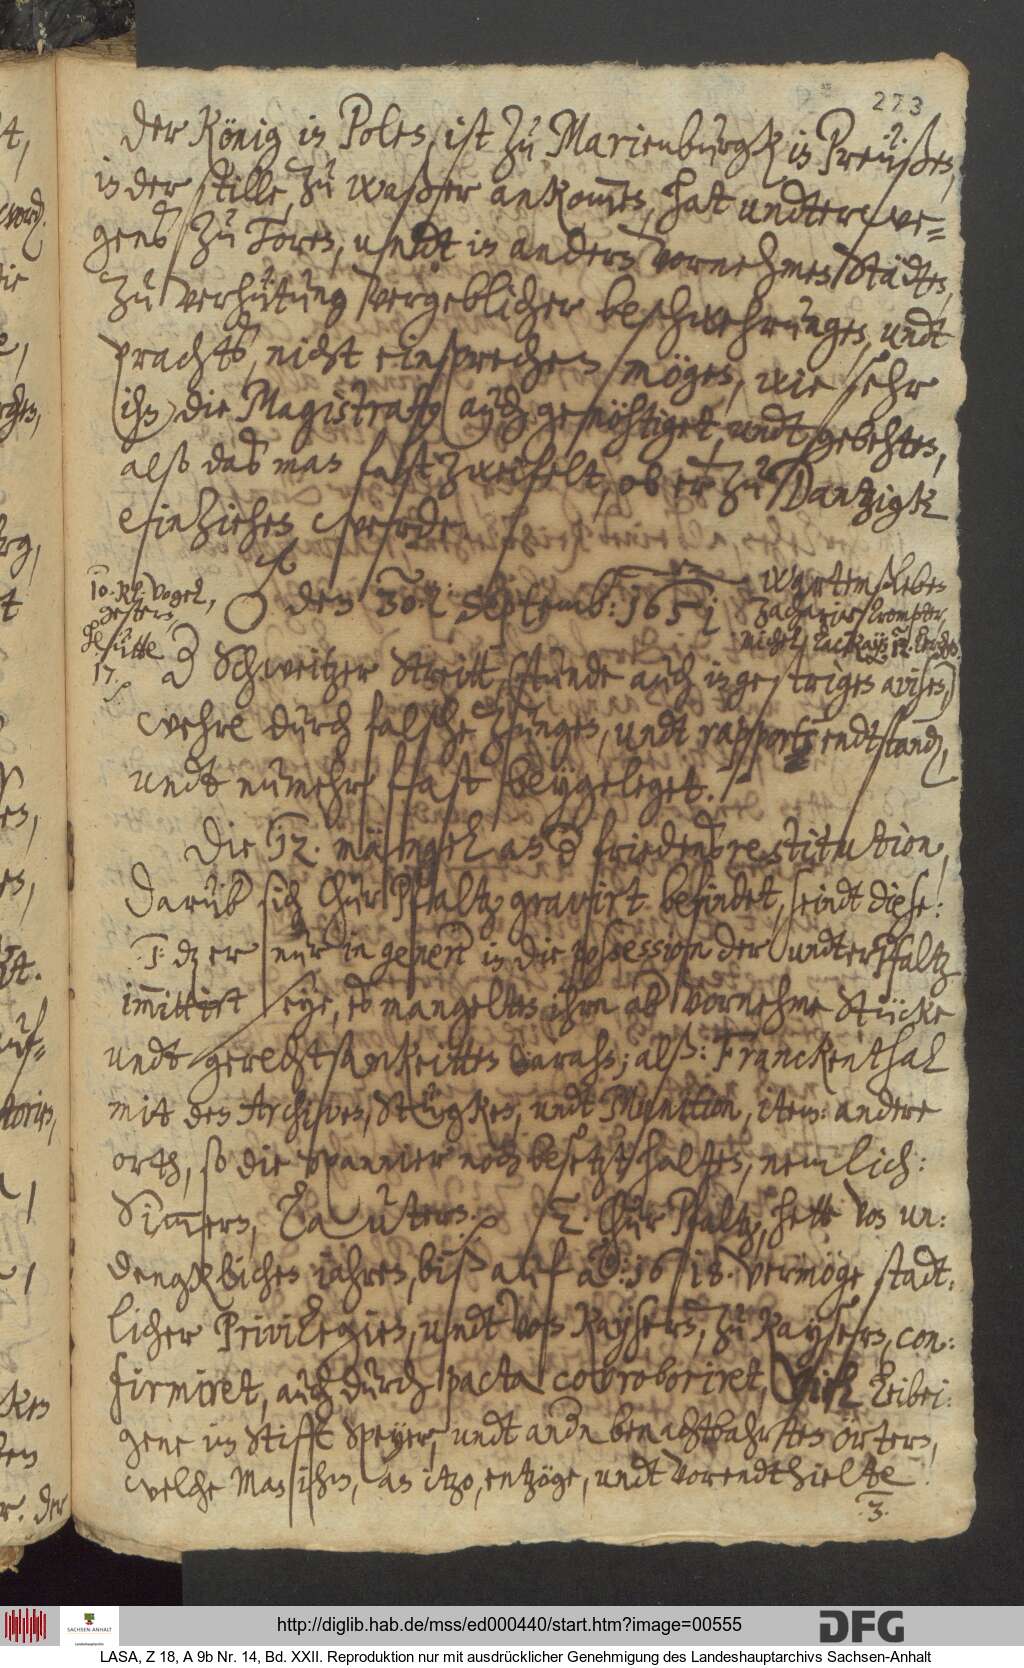 273
Der König in Polen, ist zu Marienburgk in Preußen,
in der stille, zu waßer ankommen, hat undterwe-
gens zu Toren, undt in andern vornehmen Städten,
zu verhütung vergeblicher beschwehrungen, undt
prachts, nicht einsprechen mögen, wie sehr
ihn die Magistraten auch genöhtiget, undt gebehten,
also das man fast zweifelt, ob er zu Dantzigk
einziehen werde.
den 30. Septemb: 1651
10. Rh. Vogel,
gestern,
17.
Wartensleben
Zacharias
Der Schweitzer Streitt, stunde auch in gestrigen avisen,
wehre durch falsche Zungen, undt rapports endtstanden,
undt numehr fast beygeleget.
Die 12. mängel an der friedensrestitution,
Darüber sich Chur Pfaltz gravirt befindet, seindt diese:
1: dz er nur in genere in die possession der undter Pfaltz
immittirt seye, es mangelten ihm aber vornehme Stücke
undt gerechtsamkeitten daran; alß: Franckenthal
mit den Archiven, Stügken, undt Munition, item: andere
orth, so die Spannier noch besetzt halten, nemlich:
Simmern, Lautern. 2. Chur Pfaltz, hette von un:
dengklichen iahren, biß auf ao: 1618. vermöge stadt:
licher Privilegien, undt von Kaysern, zu Kaysern, con:
firmiret, auch durch pacta corroboriret, viel Leibei:
gene im Stifft Speyer, undt andern benachtbahrten örtern,
welche man ihm, an itzo, entzöge, undt vorendthielte
3.
http://diglib.hab.de/mss/ed000440/start.htm?image=00555
SACHSEN-ANHALT
DFG
LASA, Z 18, A 9b Nr. 14, Bd. XXII. Reproduktion nur mit ausdrücklicher Genehmigung des Landeshauptarchivs Sachsen-Anhalt